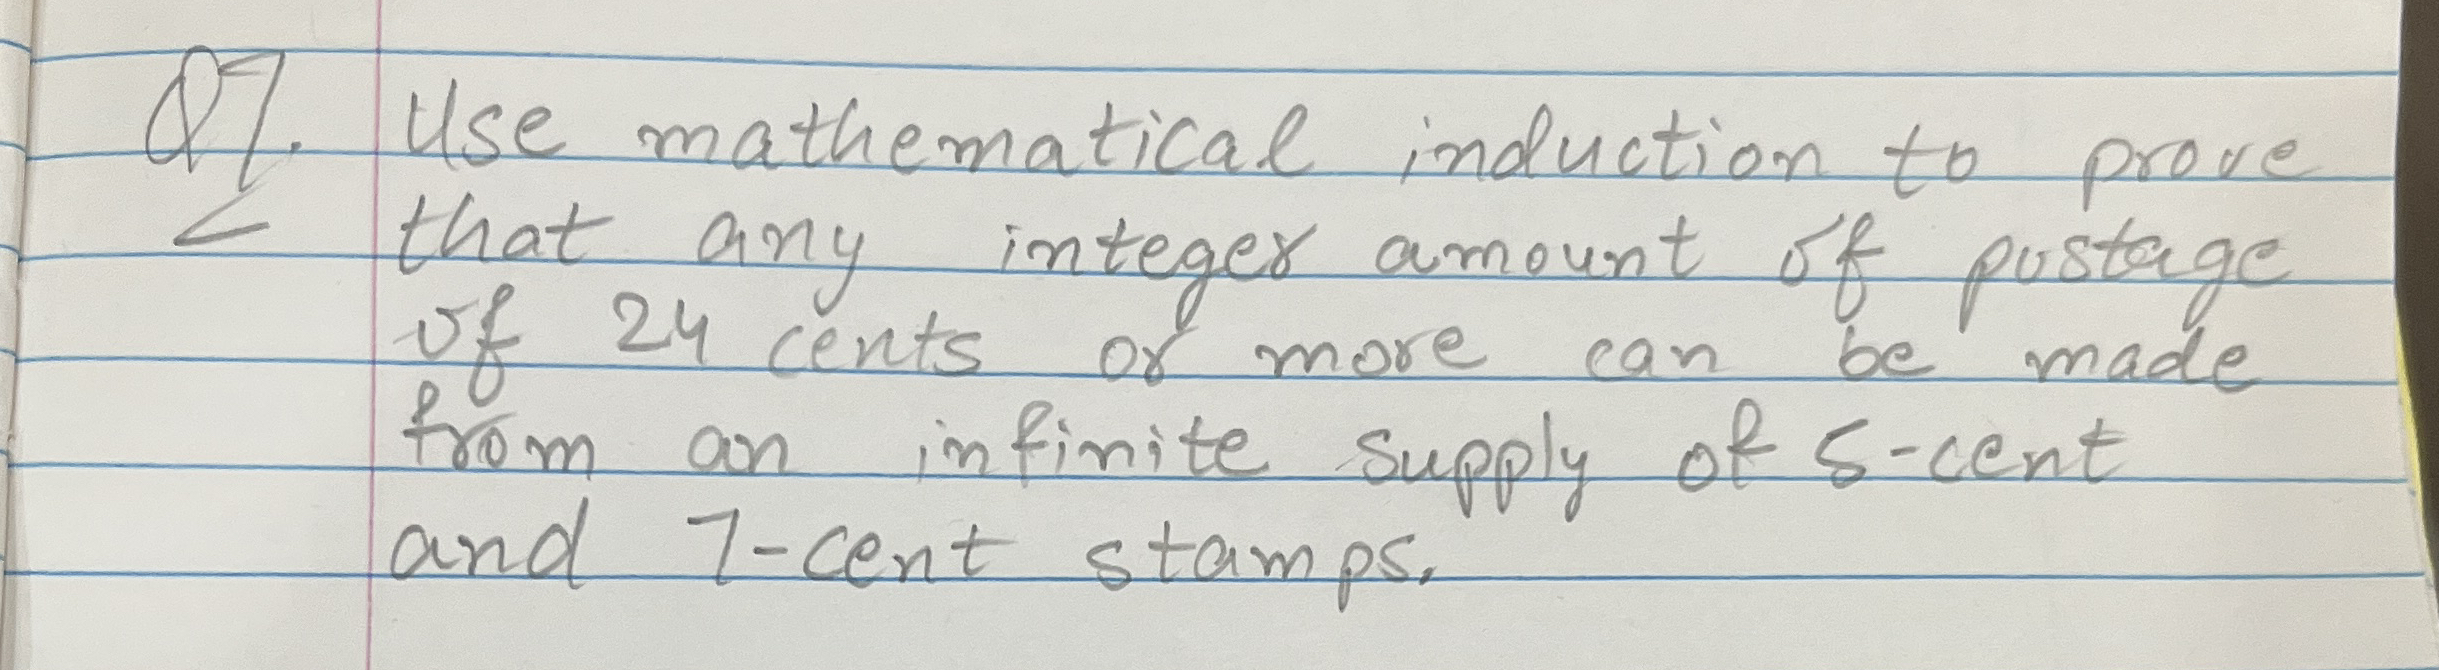 Q7. Use mathematical induction to prove
that any integer amount of postage
of 24 cents or more can be made
from an infinite supply of 5-cent
and 7-cent stamps.